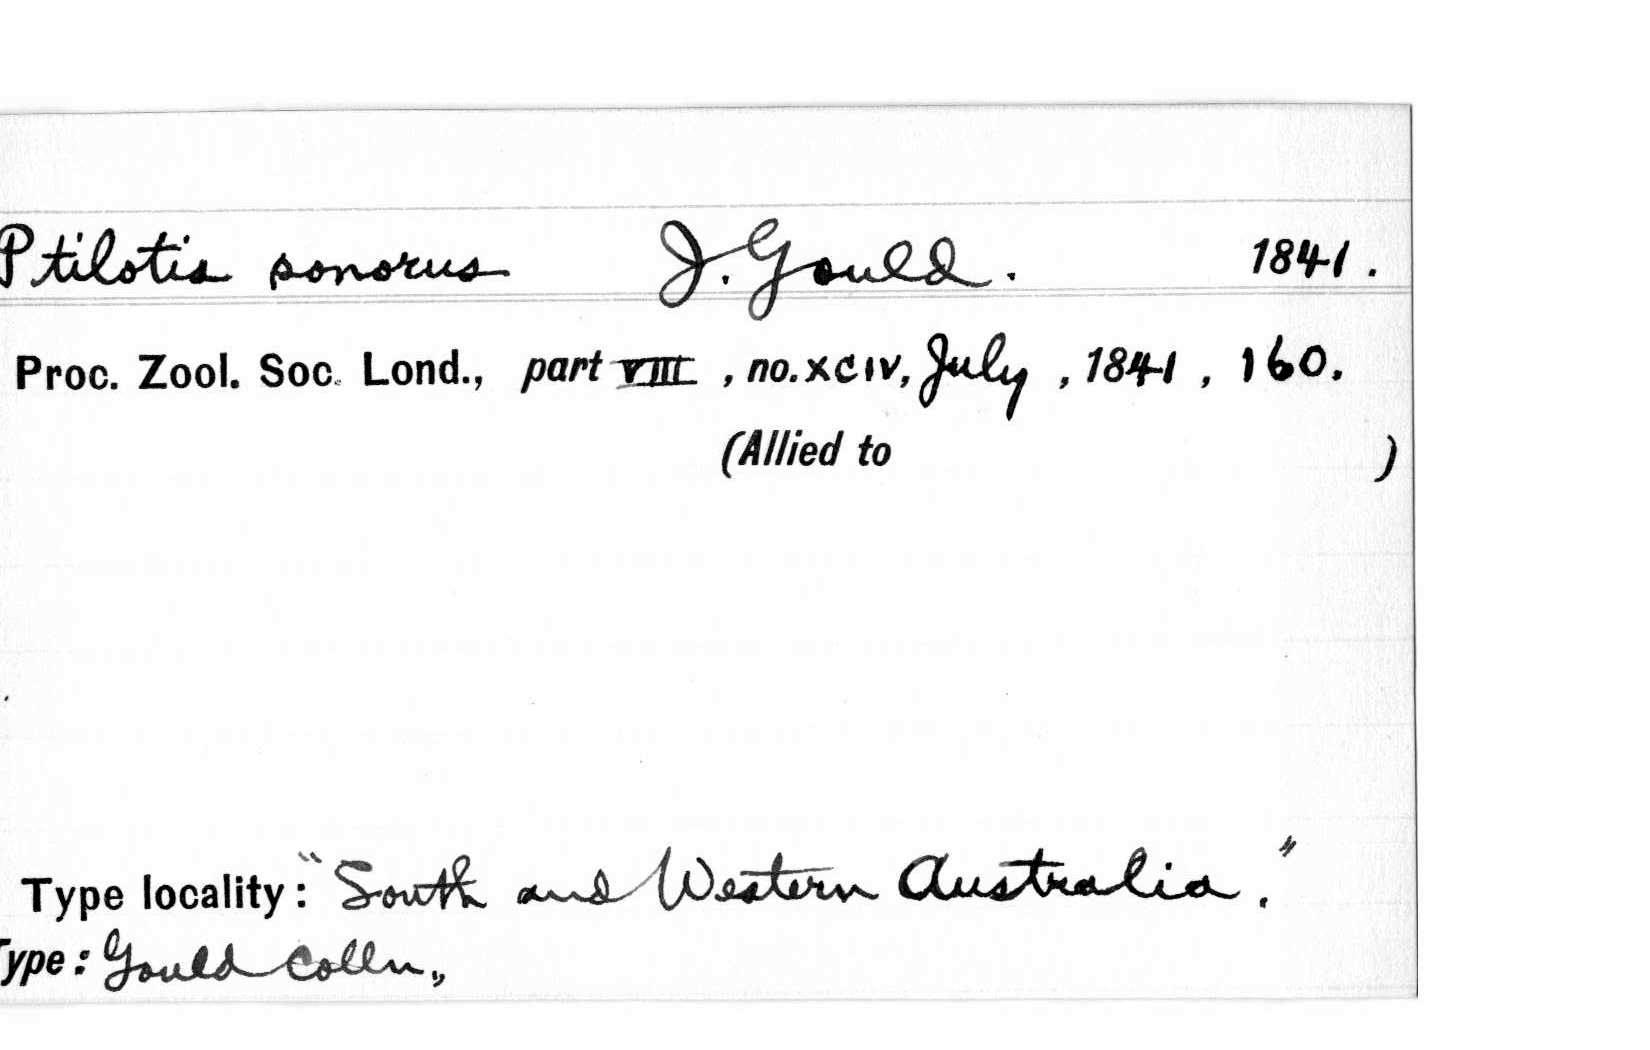 Ptilotis sonorus J. Gould. 1841.
Proc. Zool. Soc. Lond., part VIII, no. XCIV, July, 1841, 160.
(Allied to )
Type locality: "South and Western Australia."
Type: Gould Colln.,